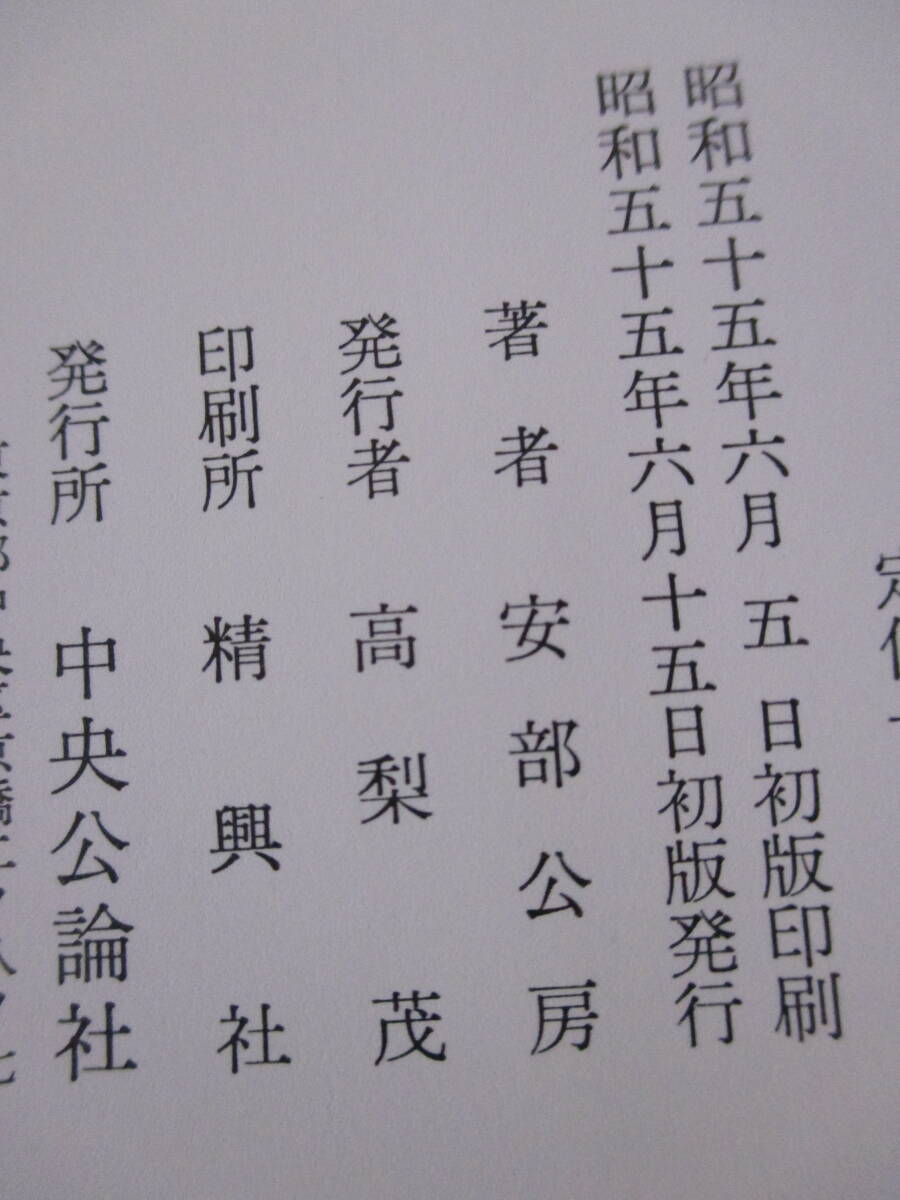 定
昭和五十五年六月 五 日初版印刷
昭和五十五年六月十五日初版発行
著者 安部公房
発行者 高梨茂
印刷所 精興社
発行所 中央公論社